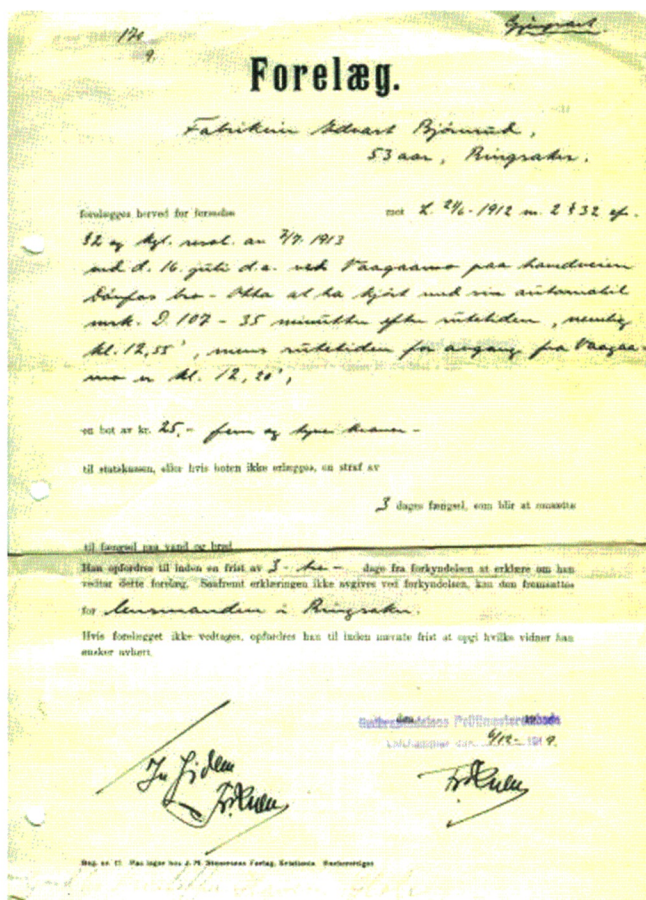 170
9.
Gjenpart.
Forelæg.
Fabrikeier Edvart Bjørnrud,
53 aar, Ringsaker.
forelægges herved for forseelse mot L. 21/6 - 1912 nr. 2 § 32 cfr.
§2 og kgl. resol. av 7/7. 1913
ved d. 16. juli d.a. ved Vaagaamo paa landveien
Dombås bro - Otta at ha kjørt med sin automobil
mrk. D. 107 - 35 minutter efter rutetiden, nemlig
kl. 12,55', mens rutetiden for avgang fra Vaagaa-
mo er kl. 12,20',
en bot av kr. 25,- fem og tyve kroner -
til statskassen, eller hvis boten ikke erlægges, en straf av
3 dages fængsel, som blir at omsætte
til fængsel paa vand og brød.
Han opfordres til inden en frist av 3 - tre - dage fra forkyndelsen at erklære om han
vedtar dette forelæg. Saafremt erklæringen ikke avgives ved forkyndelsen, kan den fremsættes
for lensmanden i Ringsaker.
Hvis forelægget ikke vedtages, opfordres han til inden nævnte frist at opgi hvilke vidner han
ønsker avhørt.
Gudbrandsdalens Politimesterembede
Lillehammer den 6/12- 1919.